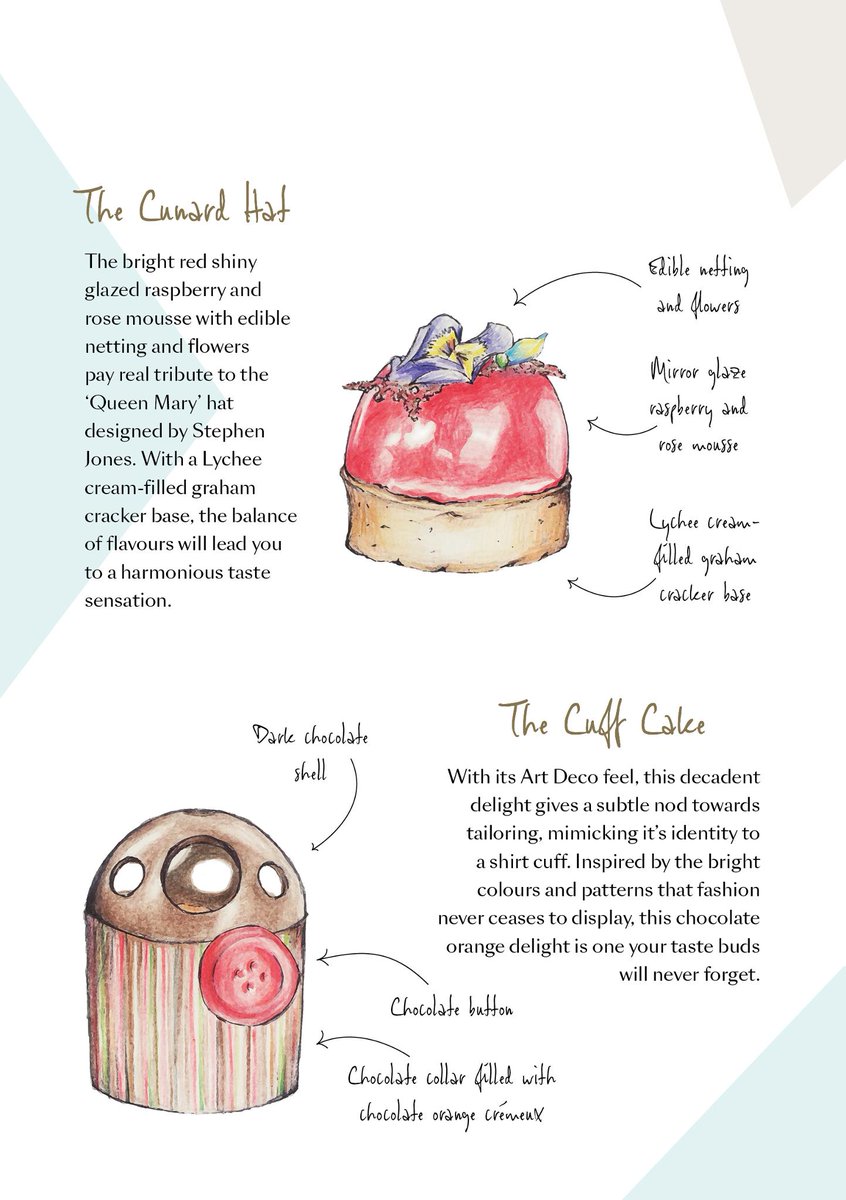 The Cunard Hat
The bright red shiny
glazed raspberry and
rose mousse with edible
netting and flowers
pay real tribute to the
‘Queen Mary’ hat
designed by Stephen
Jones. With a Lychee
cream-filled graham
cracker base, the balance
of flavours will lead you
to a harmonious taste
sensation.
Edible netting
and flowers
Mirror glaze
raspberry and
rose mousse
Lychee cream-
filled graham
cracker base
The Cuff Cake
With its Art Deco feel, this decadent
delight gives a subtle nod towards
tailoring, mimicking it’s identity to
a shirt cuff. Inspired by the bright
colours and patterns that fashion
never ceases to display, this chocolate
orange delight is one your taste buds
will never forget.
Dark chocolate
shell
Chocolate button
Chocolate collar filled with
chocolate orange crémeux